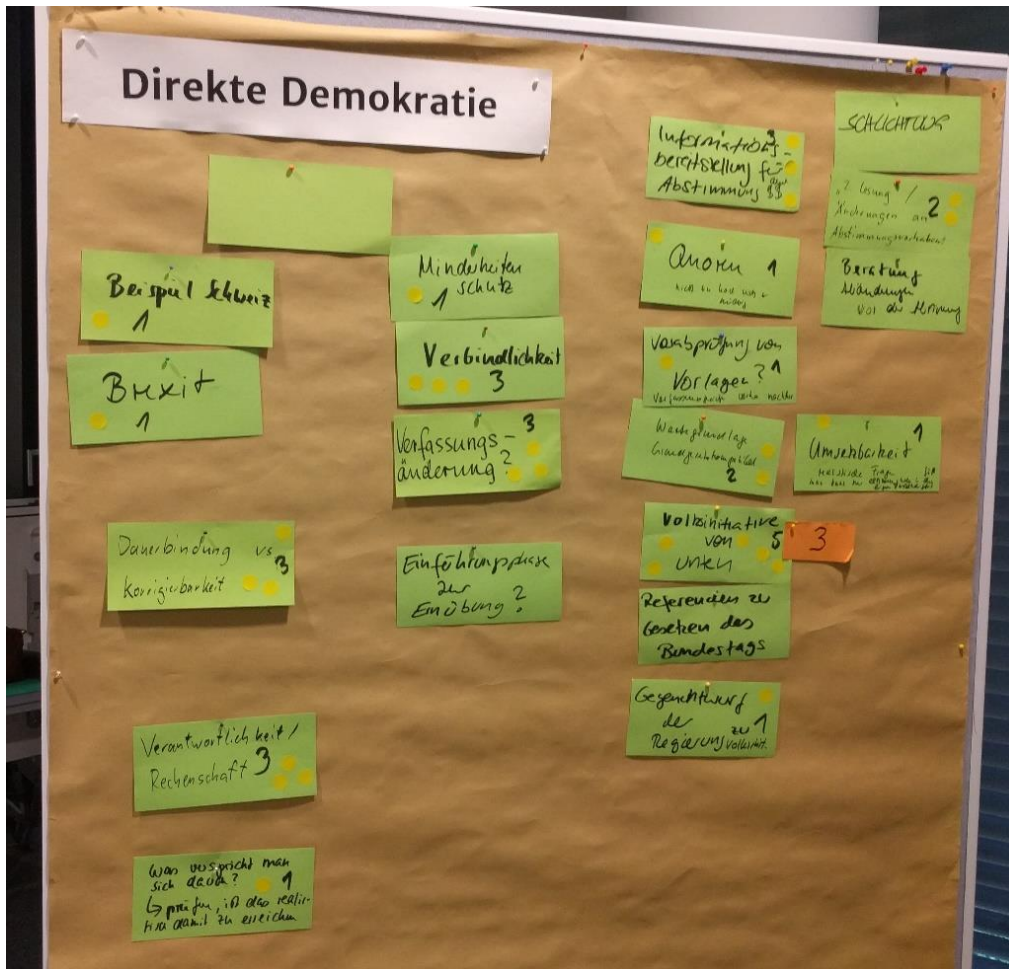 Direkte Demokratie
Beispiel Schweiz
1
Brexit
1
Dauerbindung vs
Korrigierbarkeit
3
Verantwortlichkeit /
Rechenschaft 3
Was verspricht man
sich davon?
1
↳ prüfen, ist das realis-
tisch damit zu erreichen
Minderheiten
schutz
1
Verbindlichkeit
3
Verfassungs-
änderung?
3
Einführungsphase
zur
Einübung?
Informations-
bereitstellung für
Abstimmung
3
Quoren 1
Vorabprüfung von
Vorlagen? 1
Wertegrundlage
2
Volksinitiative
von 5
unten
3
Referenden zu
Gesetzen des
Bundestags
Gegenentwurf
der zu 1
Regierung
SCHLICHTUNG
Lösung /
Änderungen an 2
Beratung
Abänderungen
vor der Abstimmung
Umsetzbarkeit
1